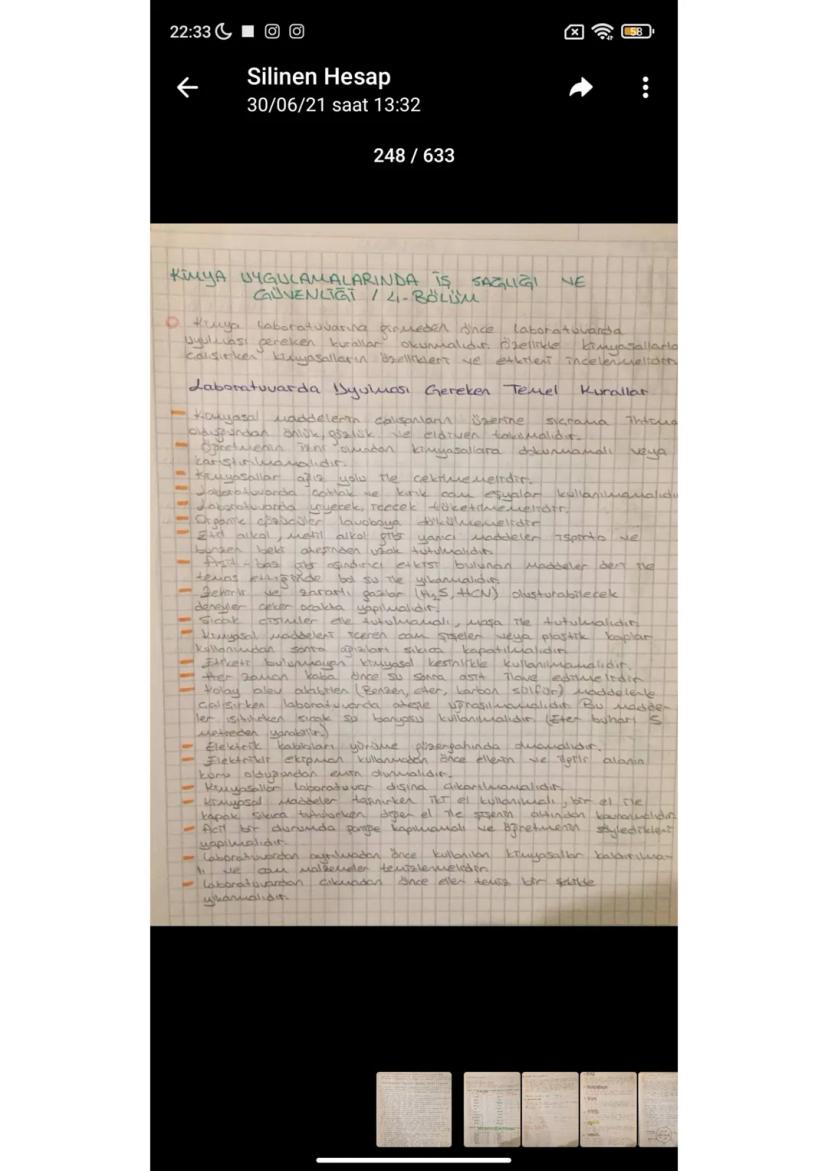 22:33
58
Silinen Hesap
30/06/21 saat 13:32
248 / 633
KİMYA UYGULAMALARINDA İŞ SAĞLIĞI VE
GÜVENLİĞİ / 4-BÖLÜM
Kimya laboratuvarına girmeden önce laboratuvarda
uyulması gereken kurallar okunmalıdır. Özellikle kimyasallarla
çalışırken kimyasalların özellikleri ve etkileri incelenmelidir.
Laboratuvarda Uyulması Gereken Temel Kurallar
- Kimyasal maddelerin çalışanların üzerine sıçrama ihtima
olduğundan önlük, gözlük ve eldiven takılmalıdır.
- Öğretmenin izni olmadan kimyasallara dokunmamalı veya
karıştırılmamalıdır.
- Kimyasallar ağız yolu ile çekilmemelidir.
- Laboratuvarda çatlak ve kırık cam eşyalar kullanılmamalıdı
- Laboratuvarda yiyecek, içecek tüketilmemelidir.
- Organik çözücüler lavaboya dökülmemelidir
- Etil alkol, metil alkol gibi yanıcı maddeler ispirto ve
bunzen beki ateşinden uzak tutulmalıdır.
- Asit-baz gibi aşındırıcı etkisi bulunan maddeler deri ile
temas ettiğinde bol su ile yıkanmalıdır.
- Zehirli ve zararlı gazlar (H₂S, HCN) oluşturabilecek
deneyler çeker ocakta yapılmalıdır.
- Sıcak cisimler elle tutulmamalı, maşa ile tutulmalıdır.
- Kimyasal maddeleri içeren cam şişeler veya plastik kaplar
kullanımından sonra ağızları sıkıca kapatılmalıdır.
- Etiketi bulunmayan kimyasal kesinlikle kullanılmamalıdır.
- Her zaman kaba önce su sonra asit ilave edilmelidir
- Kolay alev alabilen (Benzen, eter, karbon sülfür) maddelerle
çalışırken laboratuvarda ateşle uğraşılmamalıdır. Bu madde-
ler ısıtılırken sıcak su banyosu kullanılmalıdır (Eter buharı 5
metreden yanabilir.)
- Elektrik kabloları yürüme güzergahında olmamalıdır.
- Elektrikli ekipman kullanmadan önce ellerin ve ilgili alanın
kuru olduğundan emin olunmalıdır.
- Kimyasallar laboratuvar dışına çıkarılmamalıdır.
- Kimyasal maddeler taşınırken iki el kullanılmalı, bir el ile
kapak sıkıca tutulurken diğer el ile şişenin altından kavranmalıdır
- Acil bir durumda paniğe kapılmamalı ve öğretmenin söyledikleri
yapılmalıdır.
- Laboratuvardan ayrılmadan önce kullanılan kimyasallar kaldırılma-
lı ve cam malzemeler temizlenmelidir
- Laboratuvardan çıkmadan önce eller temiz bir şekilde
yıkanmalıdır.